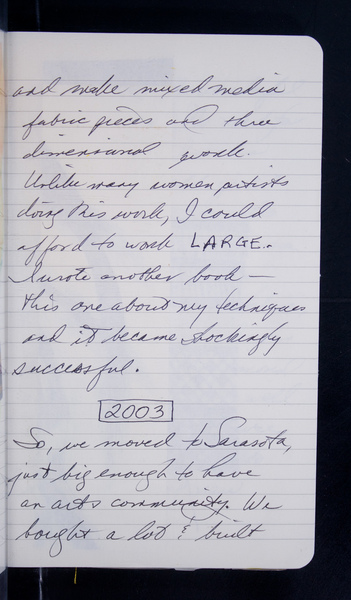 and make mixed media
fabric pieces and three
dimensional work.
Unlike many women artists
doing this work, I could
afford to work LARGE.
I wrote another book —
this one about my techniques
and it became shockingly
successful.
2003
So, we moved to Sarasota,
just big enough to have
an arts community. We
bought a lot & built